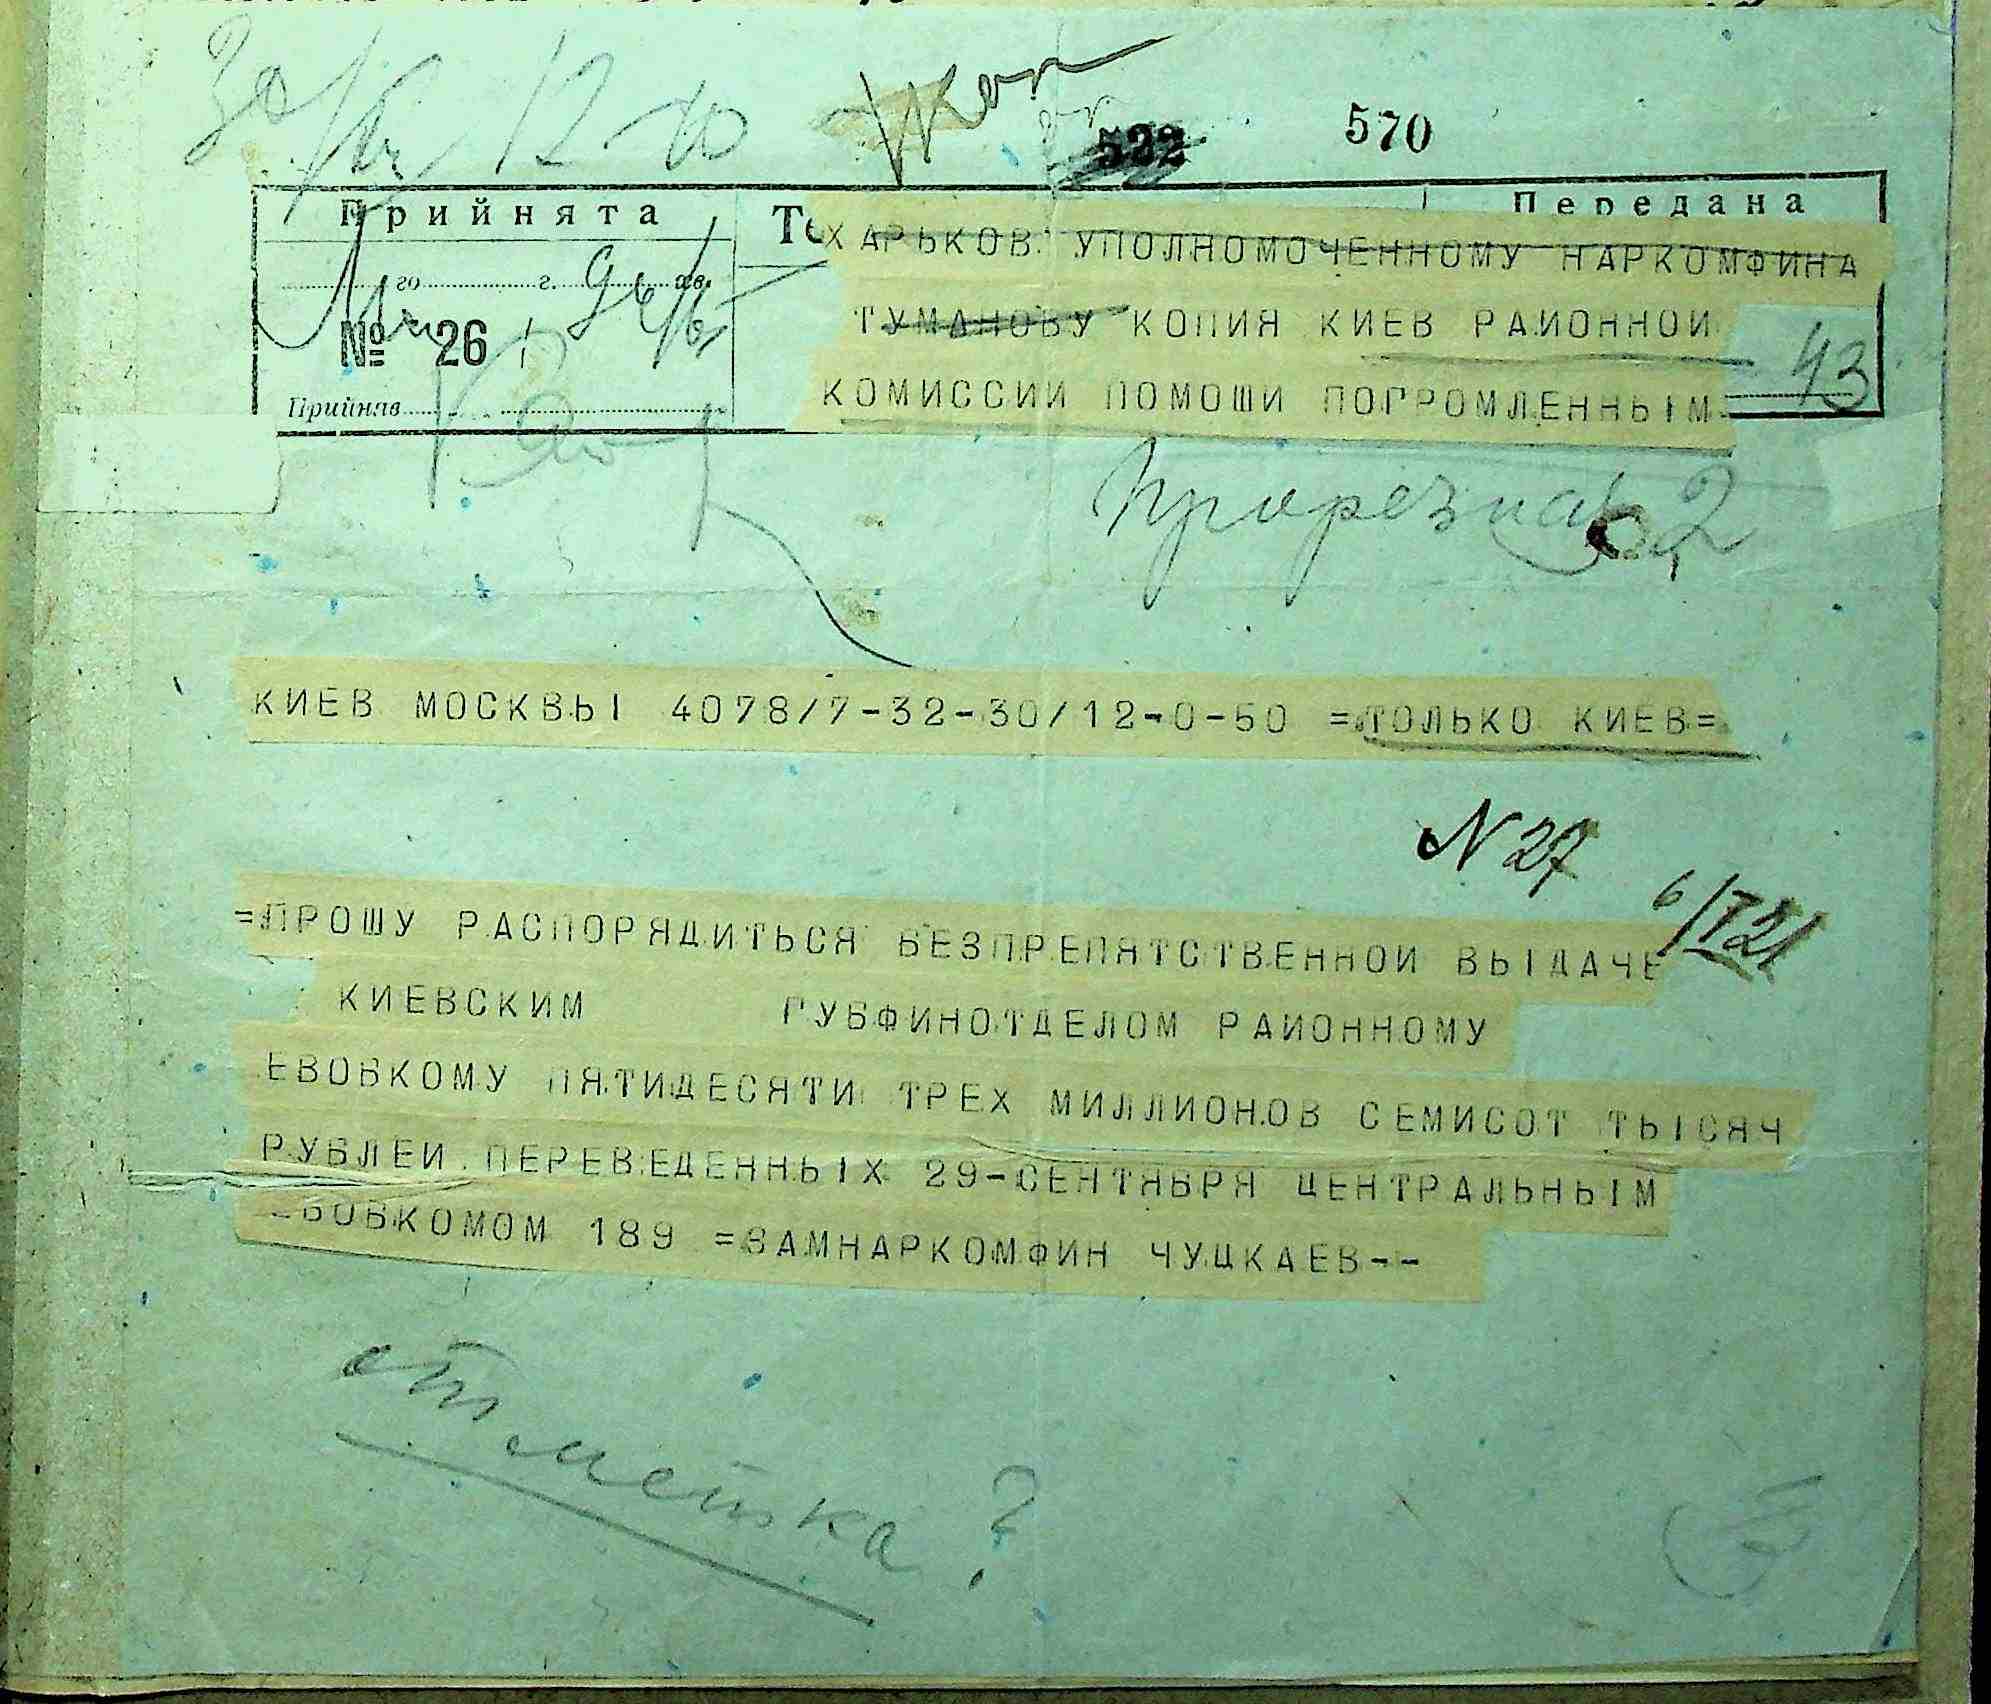 30/XII 12-10
522 570
Прийнята Те Передана
ХАРЬКОВ УПОЛНОМОЧЕННОМУ НАРКОМФИНА
го г.
ТУМАНОВУ КОПИЯ КИЕВ РАИОННОИ
№ 26
43
КОМИССИИ ПОМОШИ ПОГРОМЛЕННЫМ
Прийняв
Прорезная 2
КИЕВ МОСКВЫ 4078/7-32-30/12-0-50 =ТОЛЬКО КИЕВ=
N 27
6/I 21
=ПРОШУ РАСПОРЯДИТЬСЯ БЕЗПРЕПЯТСТВЕННОИ ВЫДАЧЕ
КИЕВСКИМ ГУБФИНОТДЕЛОМ РАИОННОМУ
ЕВОБКОМУ ПЯТИДЕСЯТИ ТРЕХ МИЛЛИОНОВ СЕМИСОТ ТЫСЯЧ
РУБЛЕИ ПЕРЕВЕДЕННЫХ 29-СЕНТЯБРЯ ЦЕНТРАЛЬНЫМ
ЕВОБКОМОМ 189 =ЗАМНАРКОМФИН ЧУЦКАЕВ--
отметка?